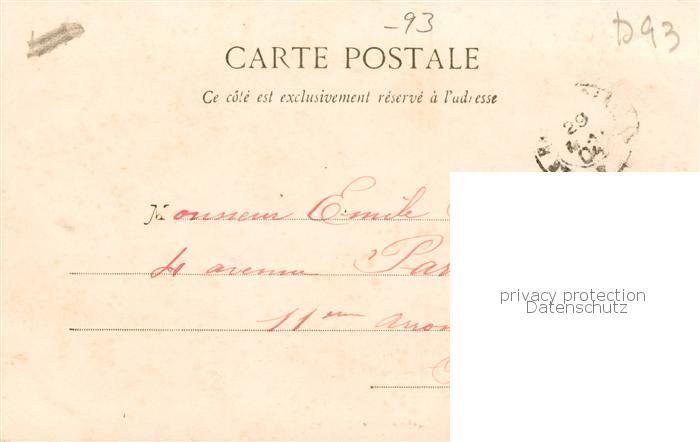 -93
D93
CARTE POSTALE
Ce côté est exclusivement réservé à l'adresse
29
Monsieur Emile
4 avenue Par
11eme arron
privacy protection
Datenschutz